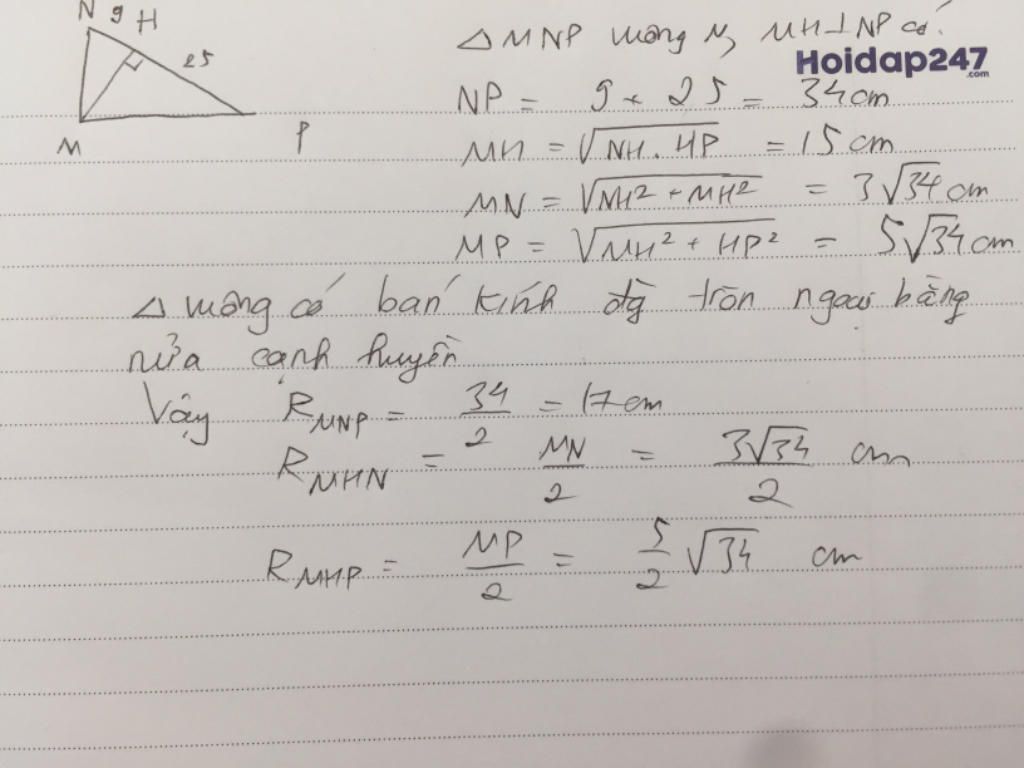 N 9 H
25
M
P
Δ MNP vuông M, MH⊥NP có:
Hoidap247
.com
NP = 9 + 25 = 34cm
MH = √NH.HP = 15cm
MN = √NH² + MH² = 3√34 cm
MP = √MH² + HP² = 5√34 cm
Δ vuông có bán kính đg tròn ngoại bằng
nửa cạnh huyền
Vậy R_MNP = 34/2 = 17cm
R_MHN = MN/2 = 3√34/2 cm
R_MHP = MP/2 = 5/2 √34 cm